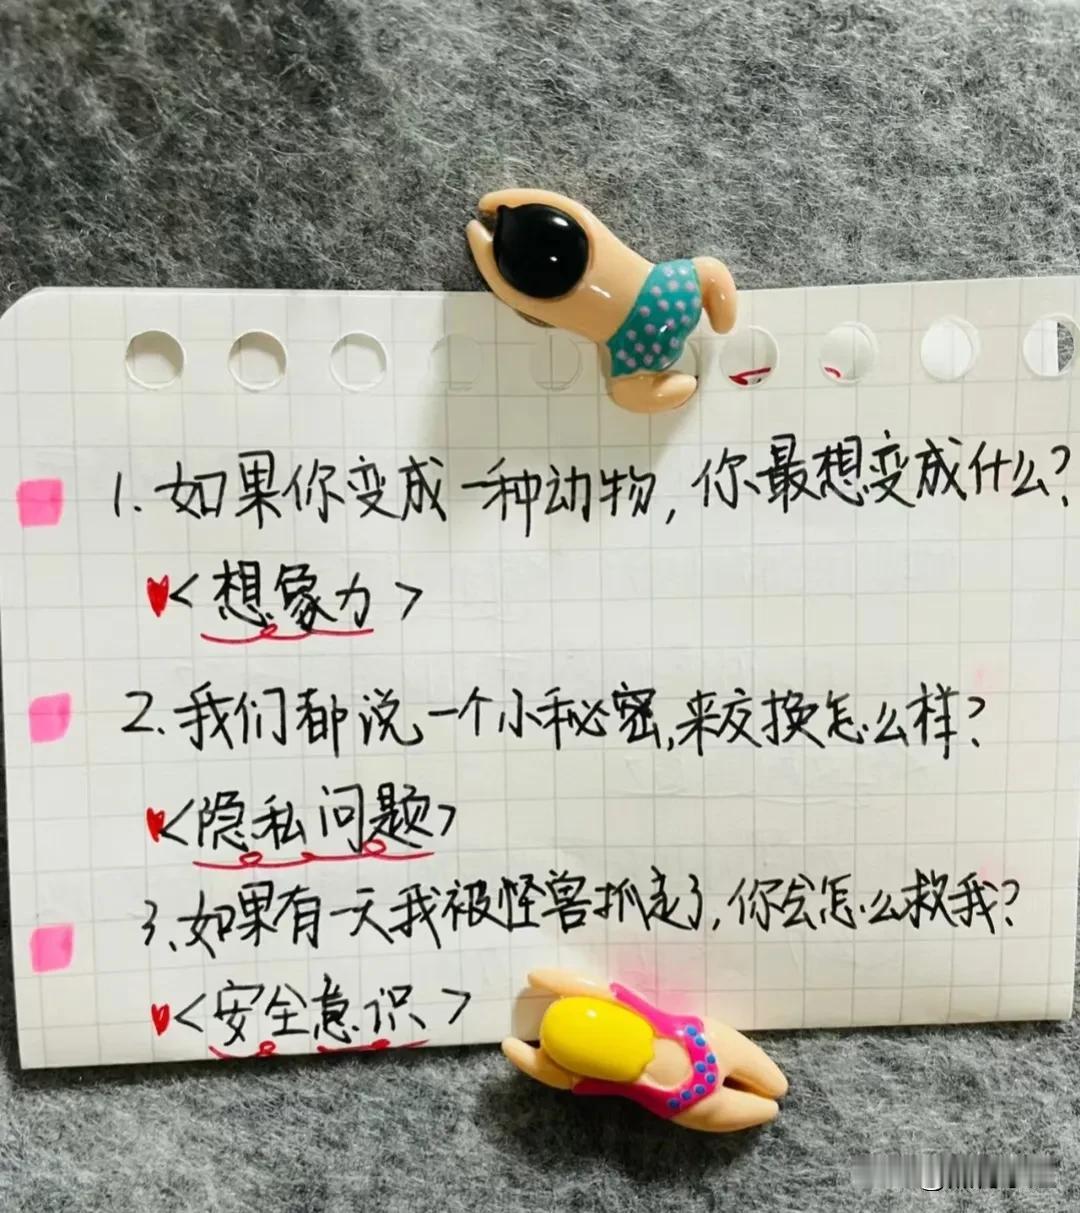 1. 如果你变成一种动物, 你最想变成什么?
<想象力>
2. 我们都说一个小秘密,来交换怎么样?
<隐私问题>
3、如果有一天我被怪兽抓走了, 你会怎么救我?
<安全意识>